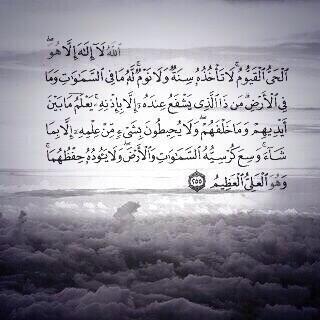 ٱللَّهُ لَآ إِلَٰهَ إِلَّا هُوَ
ٱلْحَىُّ ٱلْقَيُّومُ ۚ لَا تَأْخُذُهُۥ سِنَةٌ وَلَا نَوْمٌ ۚ لَّهُۥ مَا فِى ٱلسَّمَٰوَٰتِ وَمَا
فِى ٱلْأَرْضِ ۗ مَن ذَا ٱلَّذِى يَشْفَعُ عِندَهُۥٓ إِلَّا بِإِذْنِهِۦ ۚ يَعْلَمُ مَا بَيْنَ
أَيْدِيهِمْ وَمَا خَلْفَهُمْ ۖ وَلَا يُحِيطُونَ بِشَىْءٍ مِّنْ عِلْمِهِۦٓ إِلَّا بِمَا
شَآءَ ۚ وَسِعَ كُرْسِيُّهُ ٱلسَّمَٰوَٰتِ وَٱلْأَرْضَ ۖ وَلَا يَـُٔودُهُۥ حِفْظُهُمَا ۚ
وَهُوَ ٱلْعَلِىُّ ٱلْعَظِيمُ ٢٥٥